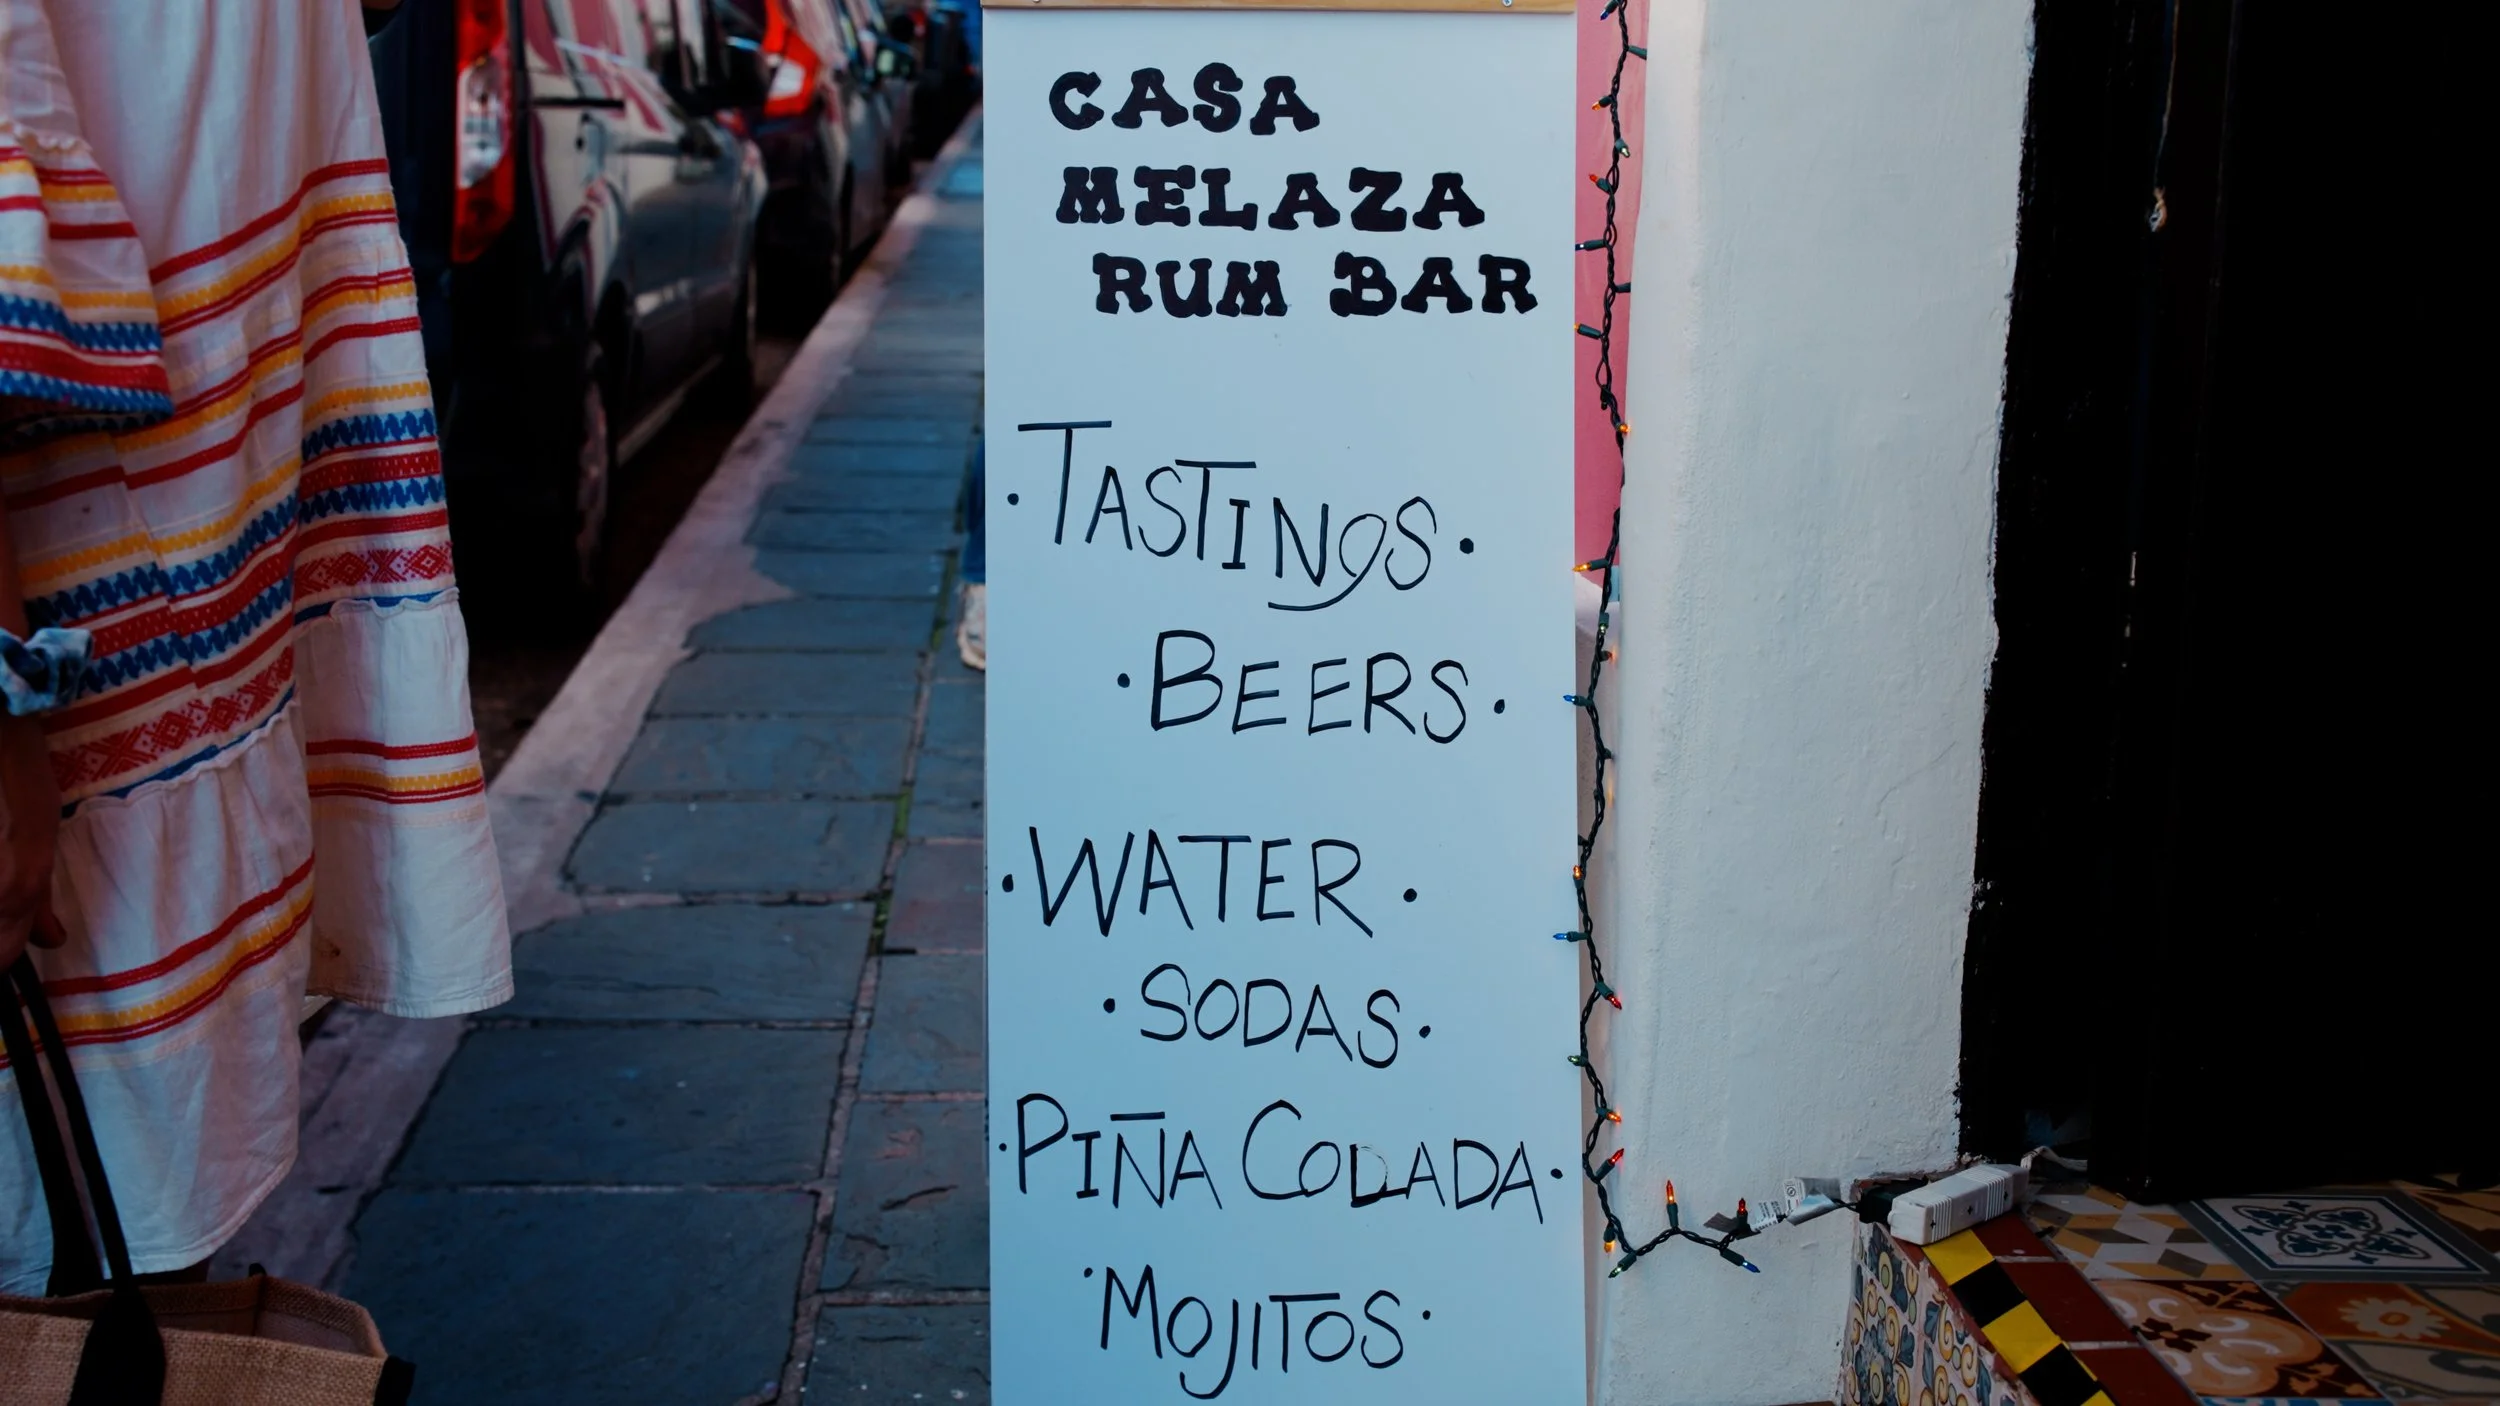 CASA
MELAZA
RUM BAR
· TASTINGS ·
· BEERS ·
· WATER ·
· SODAS ·
· PIÑA COLADA ·
· MOJITOS ·